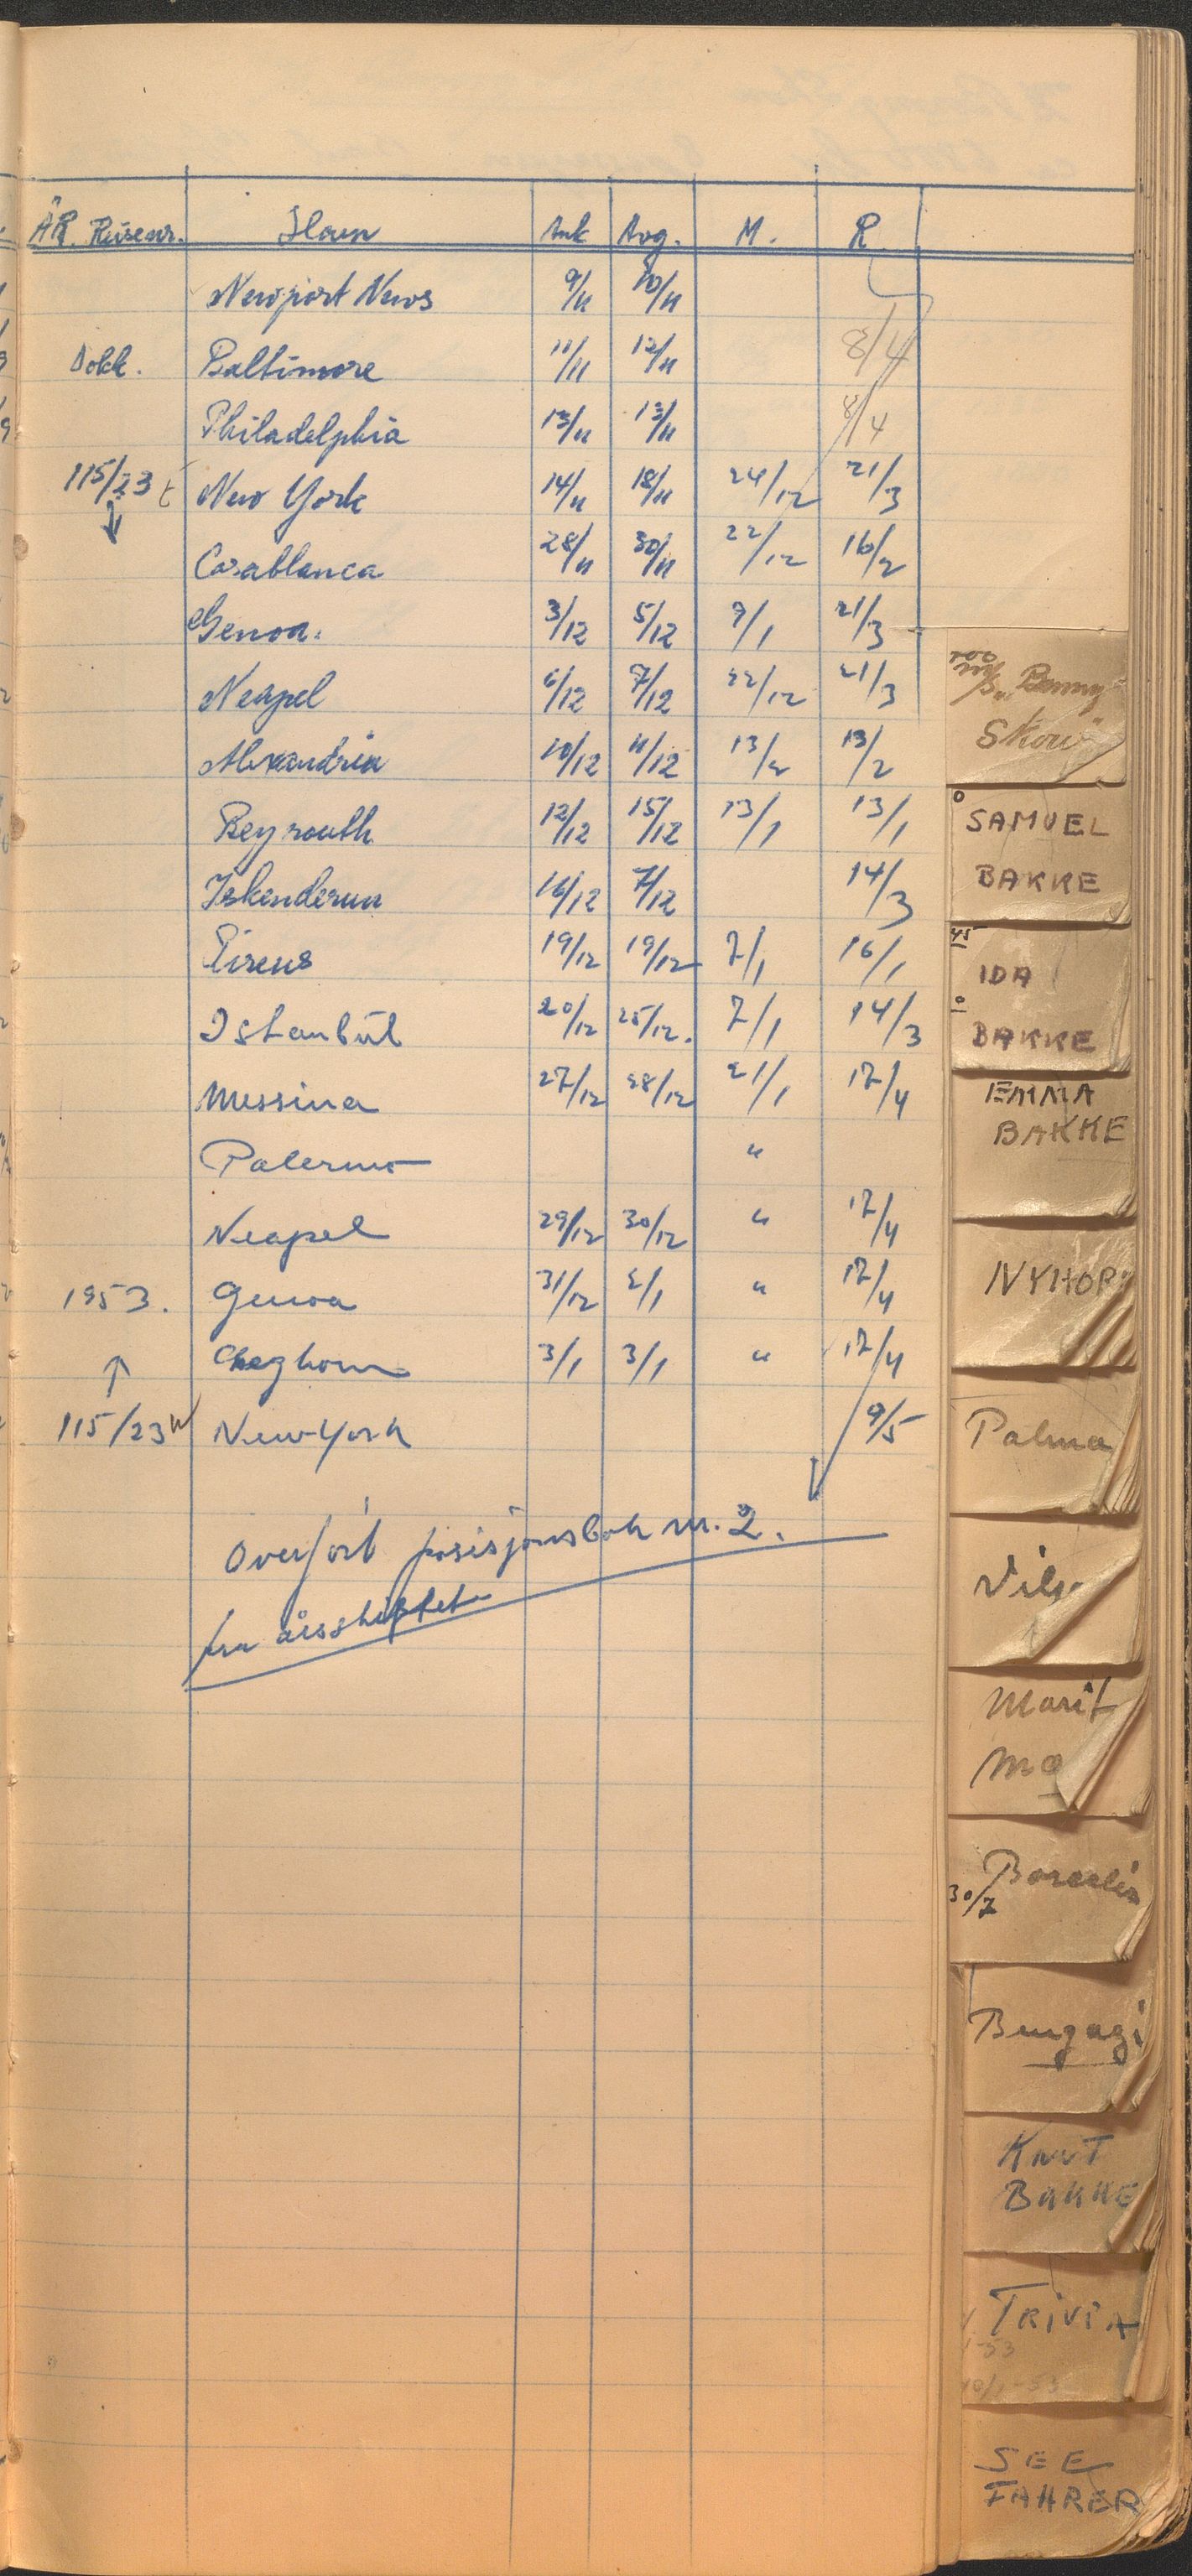 ÅR. Reisenr. Havn Ank Avg. M. R
Newport News 9/11 10/11
Dokk. Baltimore 11/11 12/11 8/4
Philadelphia 13/11 13/11 8/4
115/23 New York 14/11 18/11 24/12 21/3
↓
Casablanca 28/11 30/11 22/12 16/2
Genoa. 3/12 5/12 7/1 21/3
Neapel 6/12 7/12 22/12 21/3
Alexandria 10/12 11/12 13/2 13/2
Beyrouth 12/12 15/12 13/1 13/1
Iskenderun 16/12 7/12 14/3
Pireus 19/12 19/12 7/1 16/1
Istanbūl 20/12 25/12. 7/1 14/3
Messina 27/12 28/12 21/1 17/4
Palermo "
Neapel 29/12 30/12 " 17/4
1953. Genoa 31/12 2/1 " 17/4
↑ Leghorn 3/1 3/1 " 17/4
115/23 New-York 9/5
Overført posisjonsbok nr. 2.
fra årsskiftet
Benny
Skou
SAMUEL
BAKKE
45
IDA
BAKKE
EMMA
BAKKE
NYHOR
Palma
Marit
Mæ
30/7
Bengazi
KNUT
BAKKE
TRIVIA
SEE
FAHRER